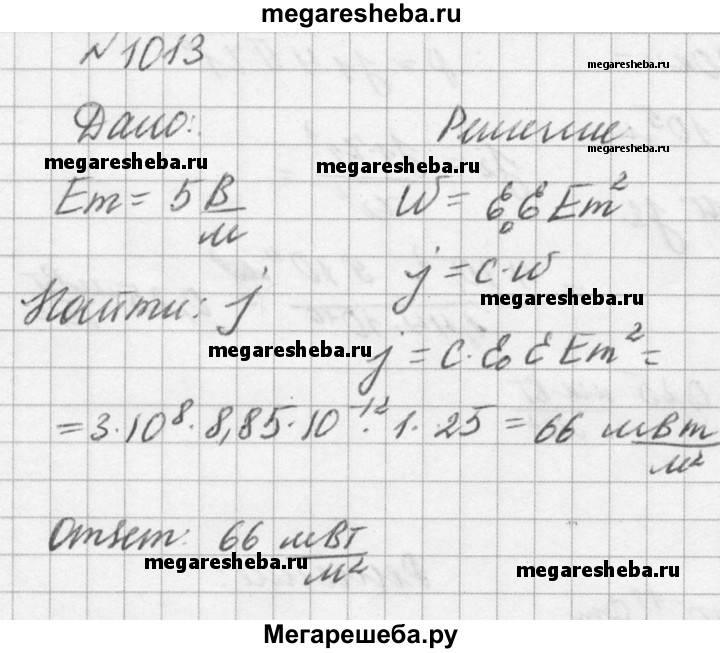 megaresheba.ru
N 1013
megaresheba.ru
Дано:
Решение:
megaresheba.ru
megaresheba.ru
megaresheba.ru
Em = 5 В/м
W = ε₀ε Em²
j = c·w
megaresheba.ru
Найти: j
megaresheba.ru
j = c·ε₀ ε Em² =
= 3·10⁸·8,85·10⁻¹²·1·25 = 66 мВт/м²
Ответ: 66 мВт/м²
megaresheba.ru
megaresheba.ru
Мегарешеба.ру